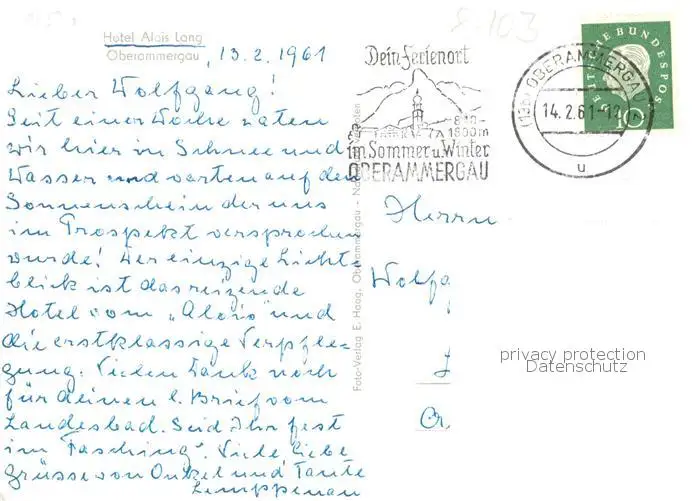 Hotel Alois Lang
Oberammergau
, 13.2.1961
Lieber Wolfgang!
Seit einer Woche waten
wir hier in Schnee und
Wasser und warten auf den
Sonnenschein der uns
im Prospekt versprochen
wurde! Der einzige Licht=
blick ist das reizende
Hotel vom „Alois" und
die erstklassige Verpfle=
gung. Vielen Dank noch
für deinen l. Brief vom
Landesbad. Seid Ihr fest
im „Fasching". Viele liebe
Grüsse von Onkel und Tante
Lemppenau
Foto-Verlag E. Haag, Oberammergau -
Dein Ferienort
850-
1800m
im Sommer u. Winter
OBERAMMERGAU
OBERAMMERGAU
14.2.61-12
u
BUNDESPOS
10
Herrn
Wolfg
privacy protection
Datenschutz